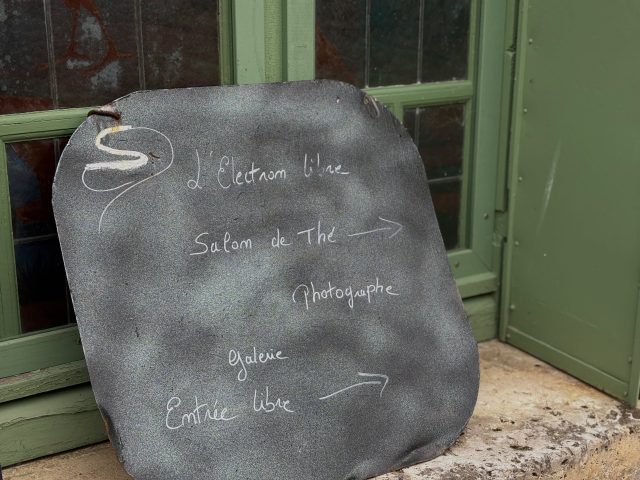 L'Electron libre
Salon de Thé →
Photographe
Galerie
Entrée libre →